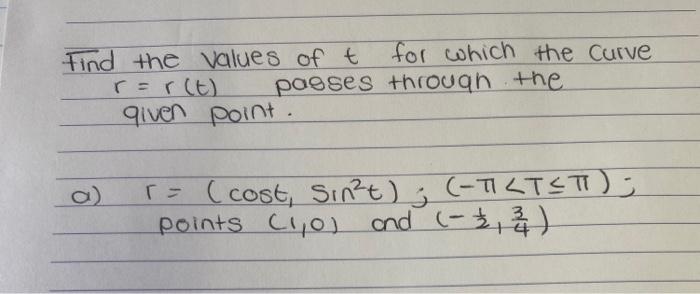 Find the values of t for which the curve
r = r(t) passes through the
given point.
a) r = (cost, sin²t) ; (-π<T≤π) ;
points (1,0) and (-½, ¾)